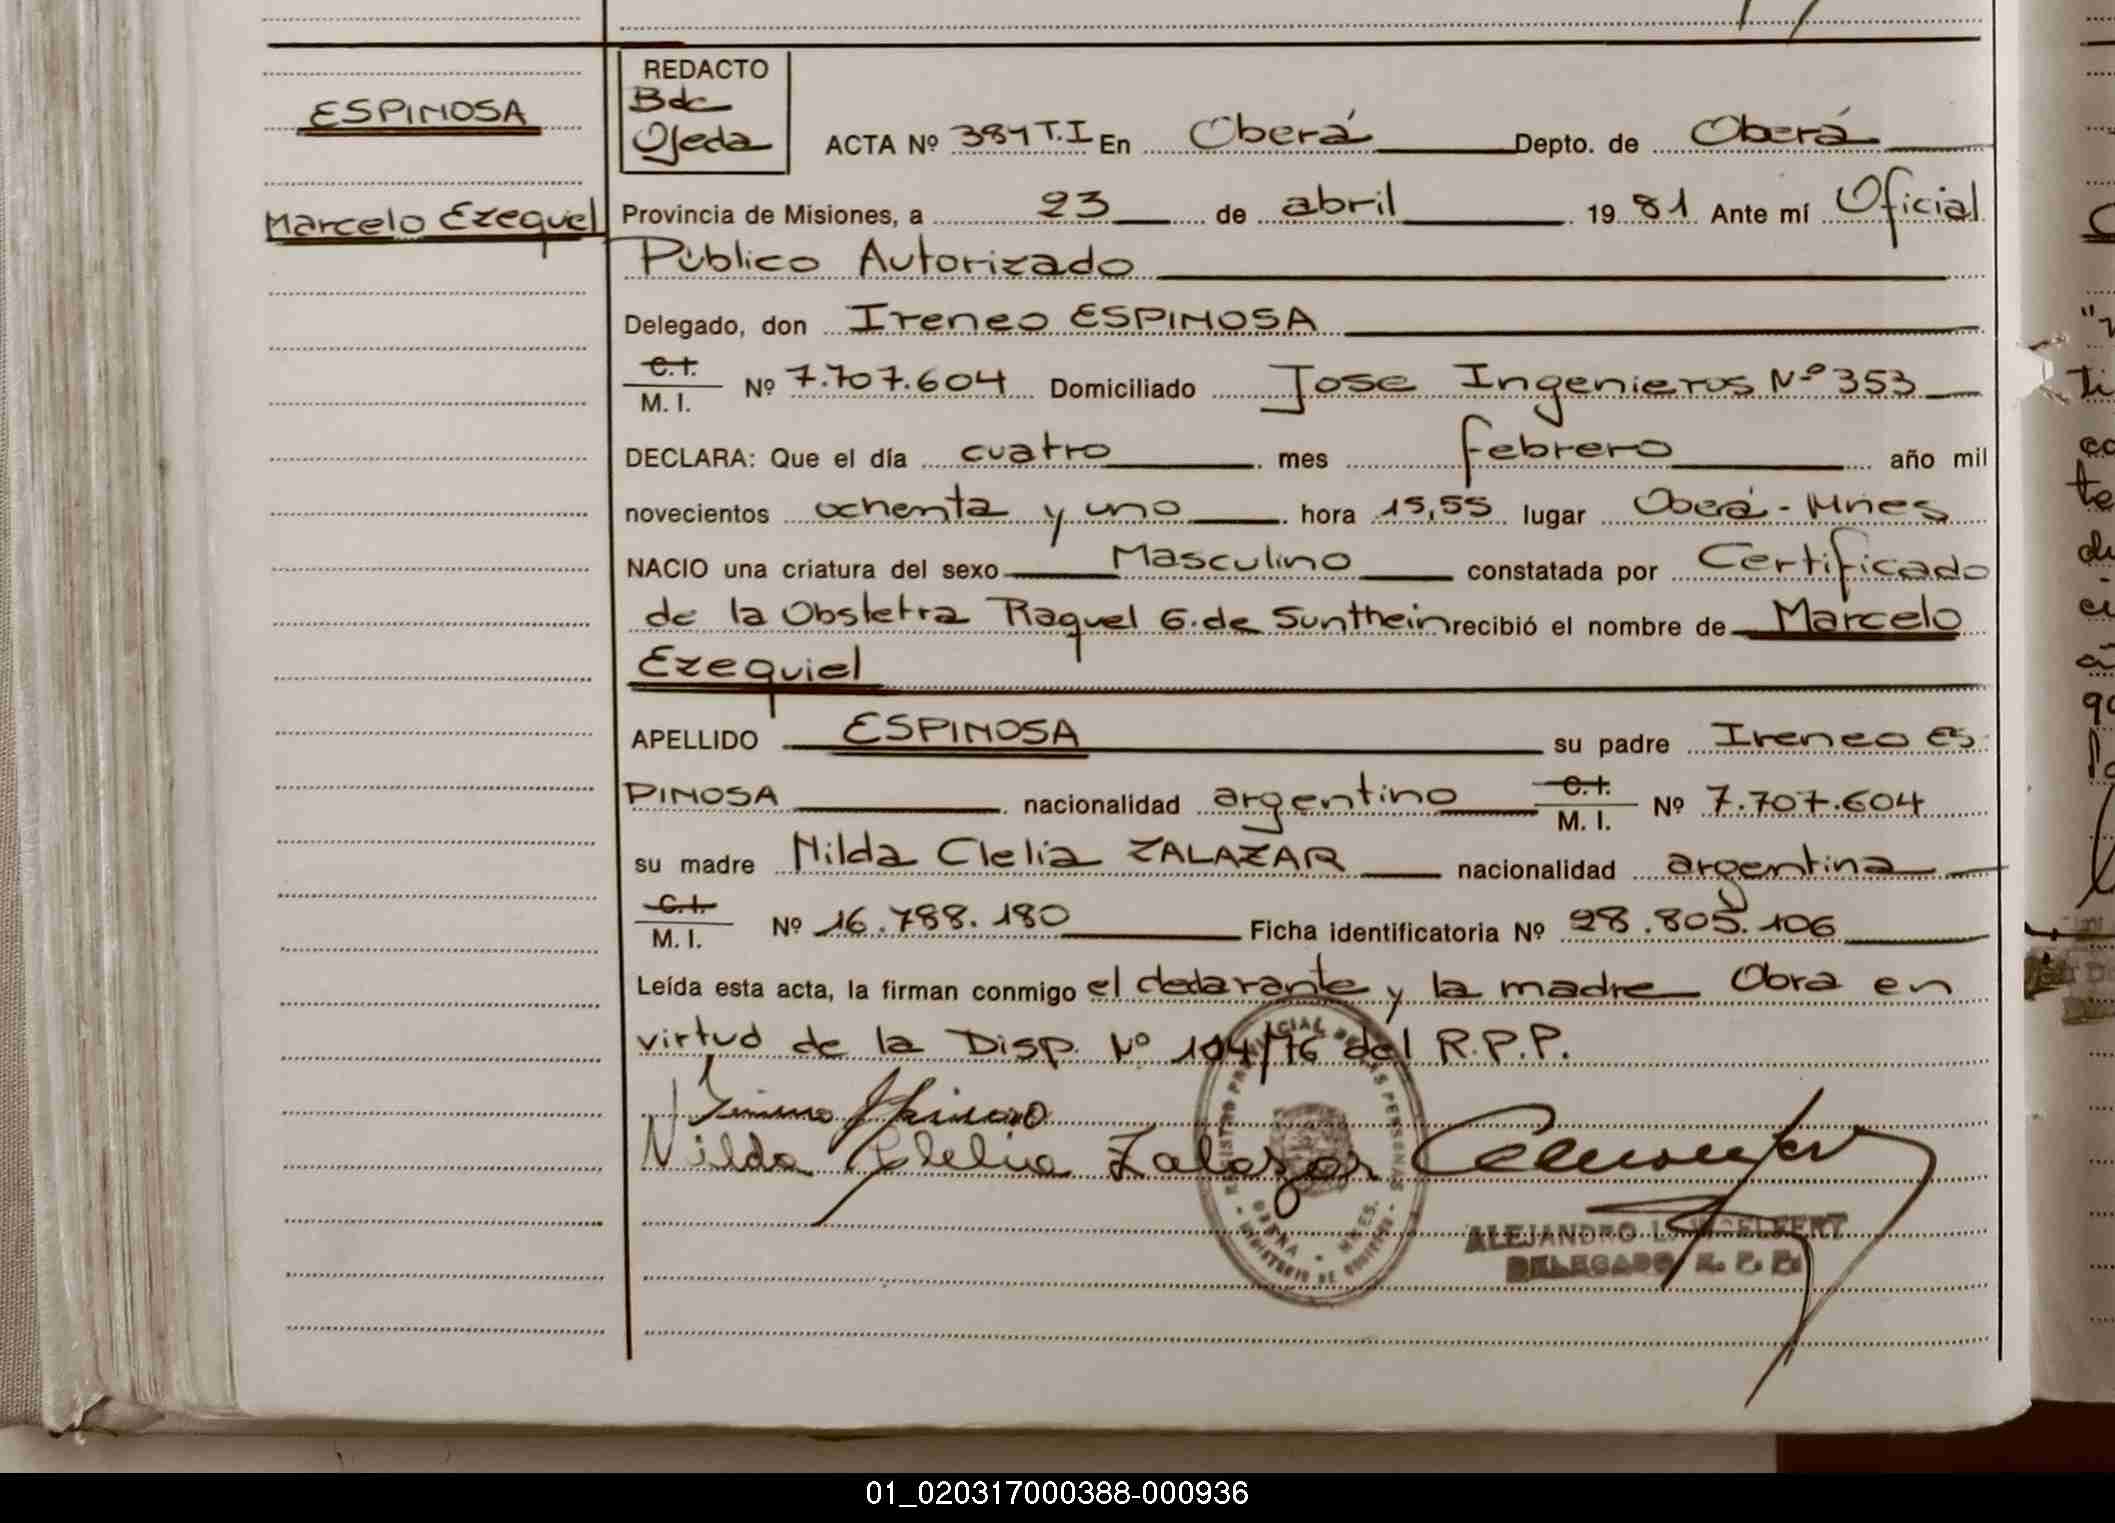 ESPINOSA
Marcelo Ezequel
REDACTO
Bdc
Ojeda
ACTA Nº 381 T.I En Oberá Depto. de Oberá
Provincia de Misiones, a 23 de abril 19 81 Ante mí Oficial
Público Autorizado
Delegado, don Ireneo ESPINOSA
C.I.
M. I. Nº 7.707.604 Domiciliado Jose Ingenieros Nº 353
DECLARA: Que el día cuatro mes febrero año mil
novecientos ochenta y uno hora 15,55 lugar Oberá - Mnes
NACIO una criatura del sexo Masculino constatada por Certificado
de la Obstetra Raquel G. de Sunthein recibió el nombre de Marcelo
Ezequiel
APELLIDO ESPINOSA su padre Ireneo ES
PINOSA nacionalidad argentino C.I. M. I. Nº 7.707.604
su madre Nilda Clelia ZALAZAR nacionalidad argentina
C.I.
M. I. Nº 16.788.180 Ficha identificatoria Nº 28.805.106
Leída esta acta, la firman conmigo el declarante y la madre Obra en
virtud de la Disp. Nº 104/76 del R.P.P.
Ireneo Espinosa
Nilda Clelia Zalazar
REGISTRO PROVINCIAL DE LAS PERSONAS
OBERA - MNES.
MINISTERIO DE GOBIERNO
ALEJANDRO
DELEGADO R. P. P.
01_020317000388-000936